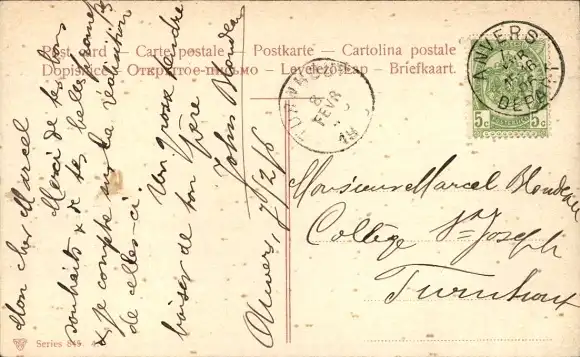 Post card — Carte postale — Postkarte — Cartolina postale
Dopisnice — Открытое письмо — Levelező-Lap — Briefkaart.
Mon cher Marcel
Merci de tes bons
souhaits & de tes belles
& je compte sur la réalisation
de celles-ci.
Un gros & tendre
baiser de ton Père
John Blondeau
Anvers, 7/2/6
TURNHOUT
8
FEVR
ANVERS
DEPART
5c 5c
Monsieur Marcel Blondeau
Collège St Joseph
Turnhout
Series 845.